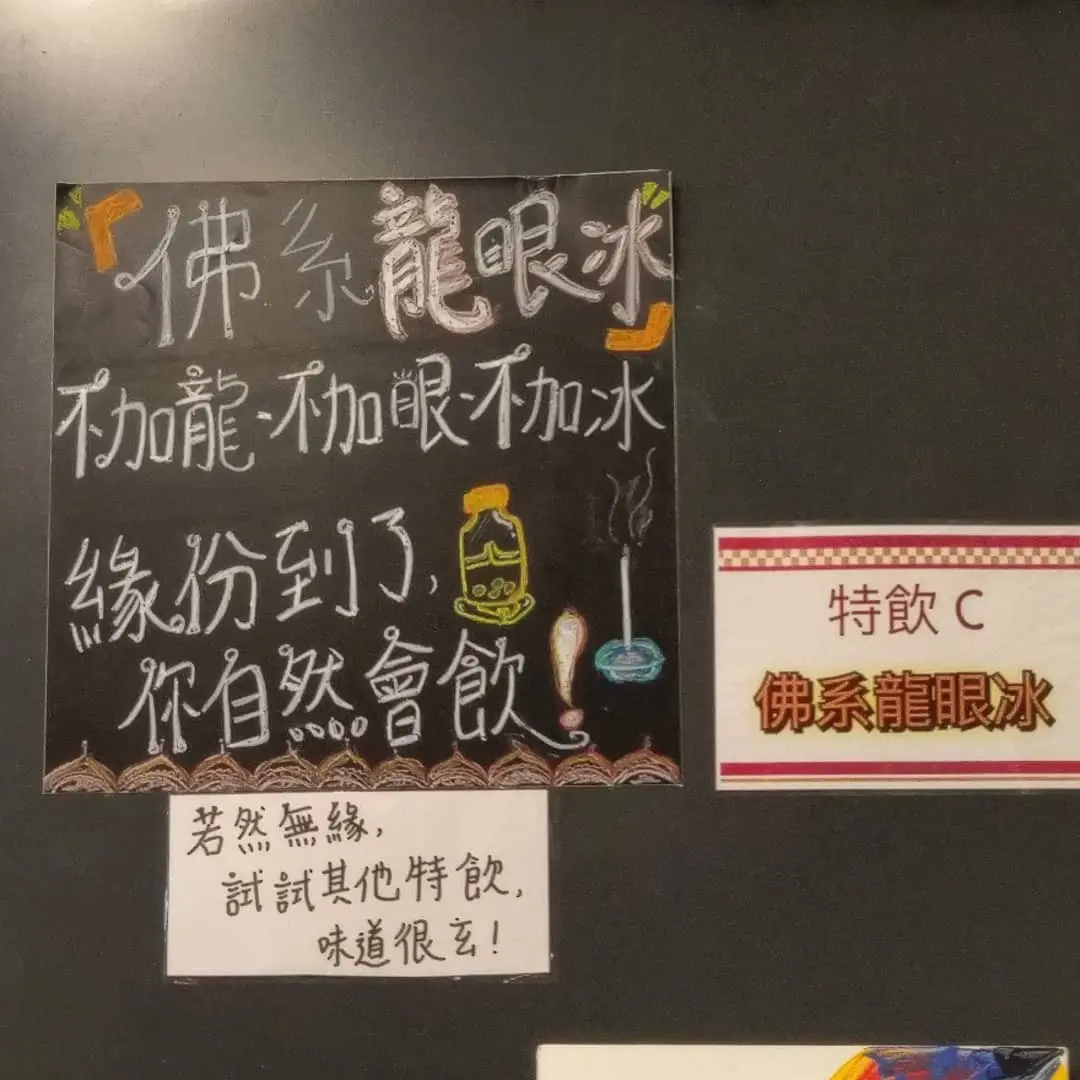 「佛系龍眼冰」
不加龍、不加眼、不加冰
緣份到了,
你自然會飲!
若然無緣,
試試其他特飲,
味道很玄!
特飲 C
佛系龍眼冰